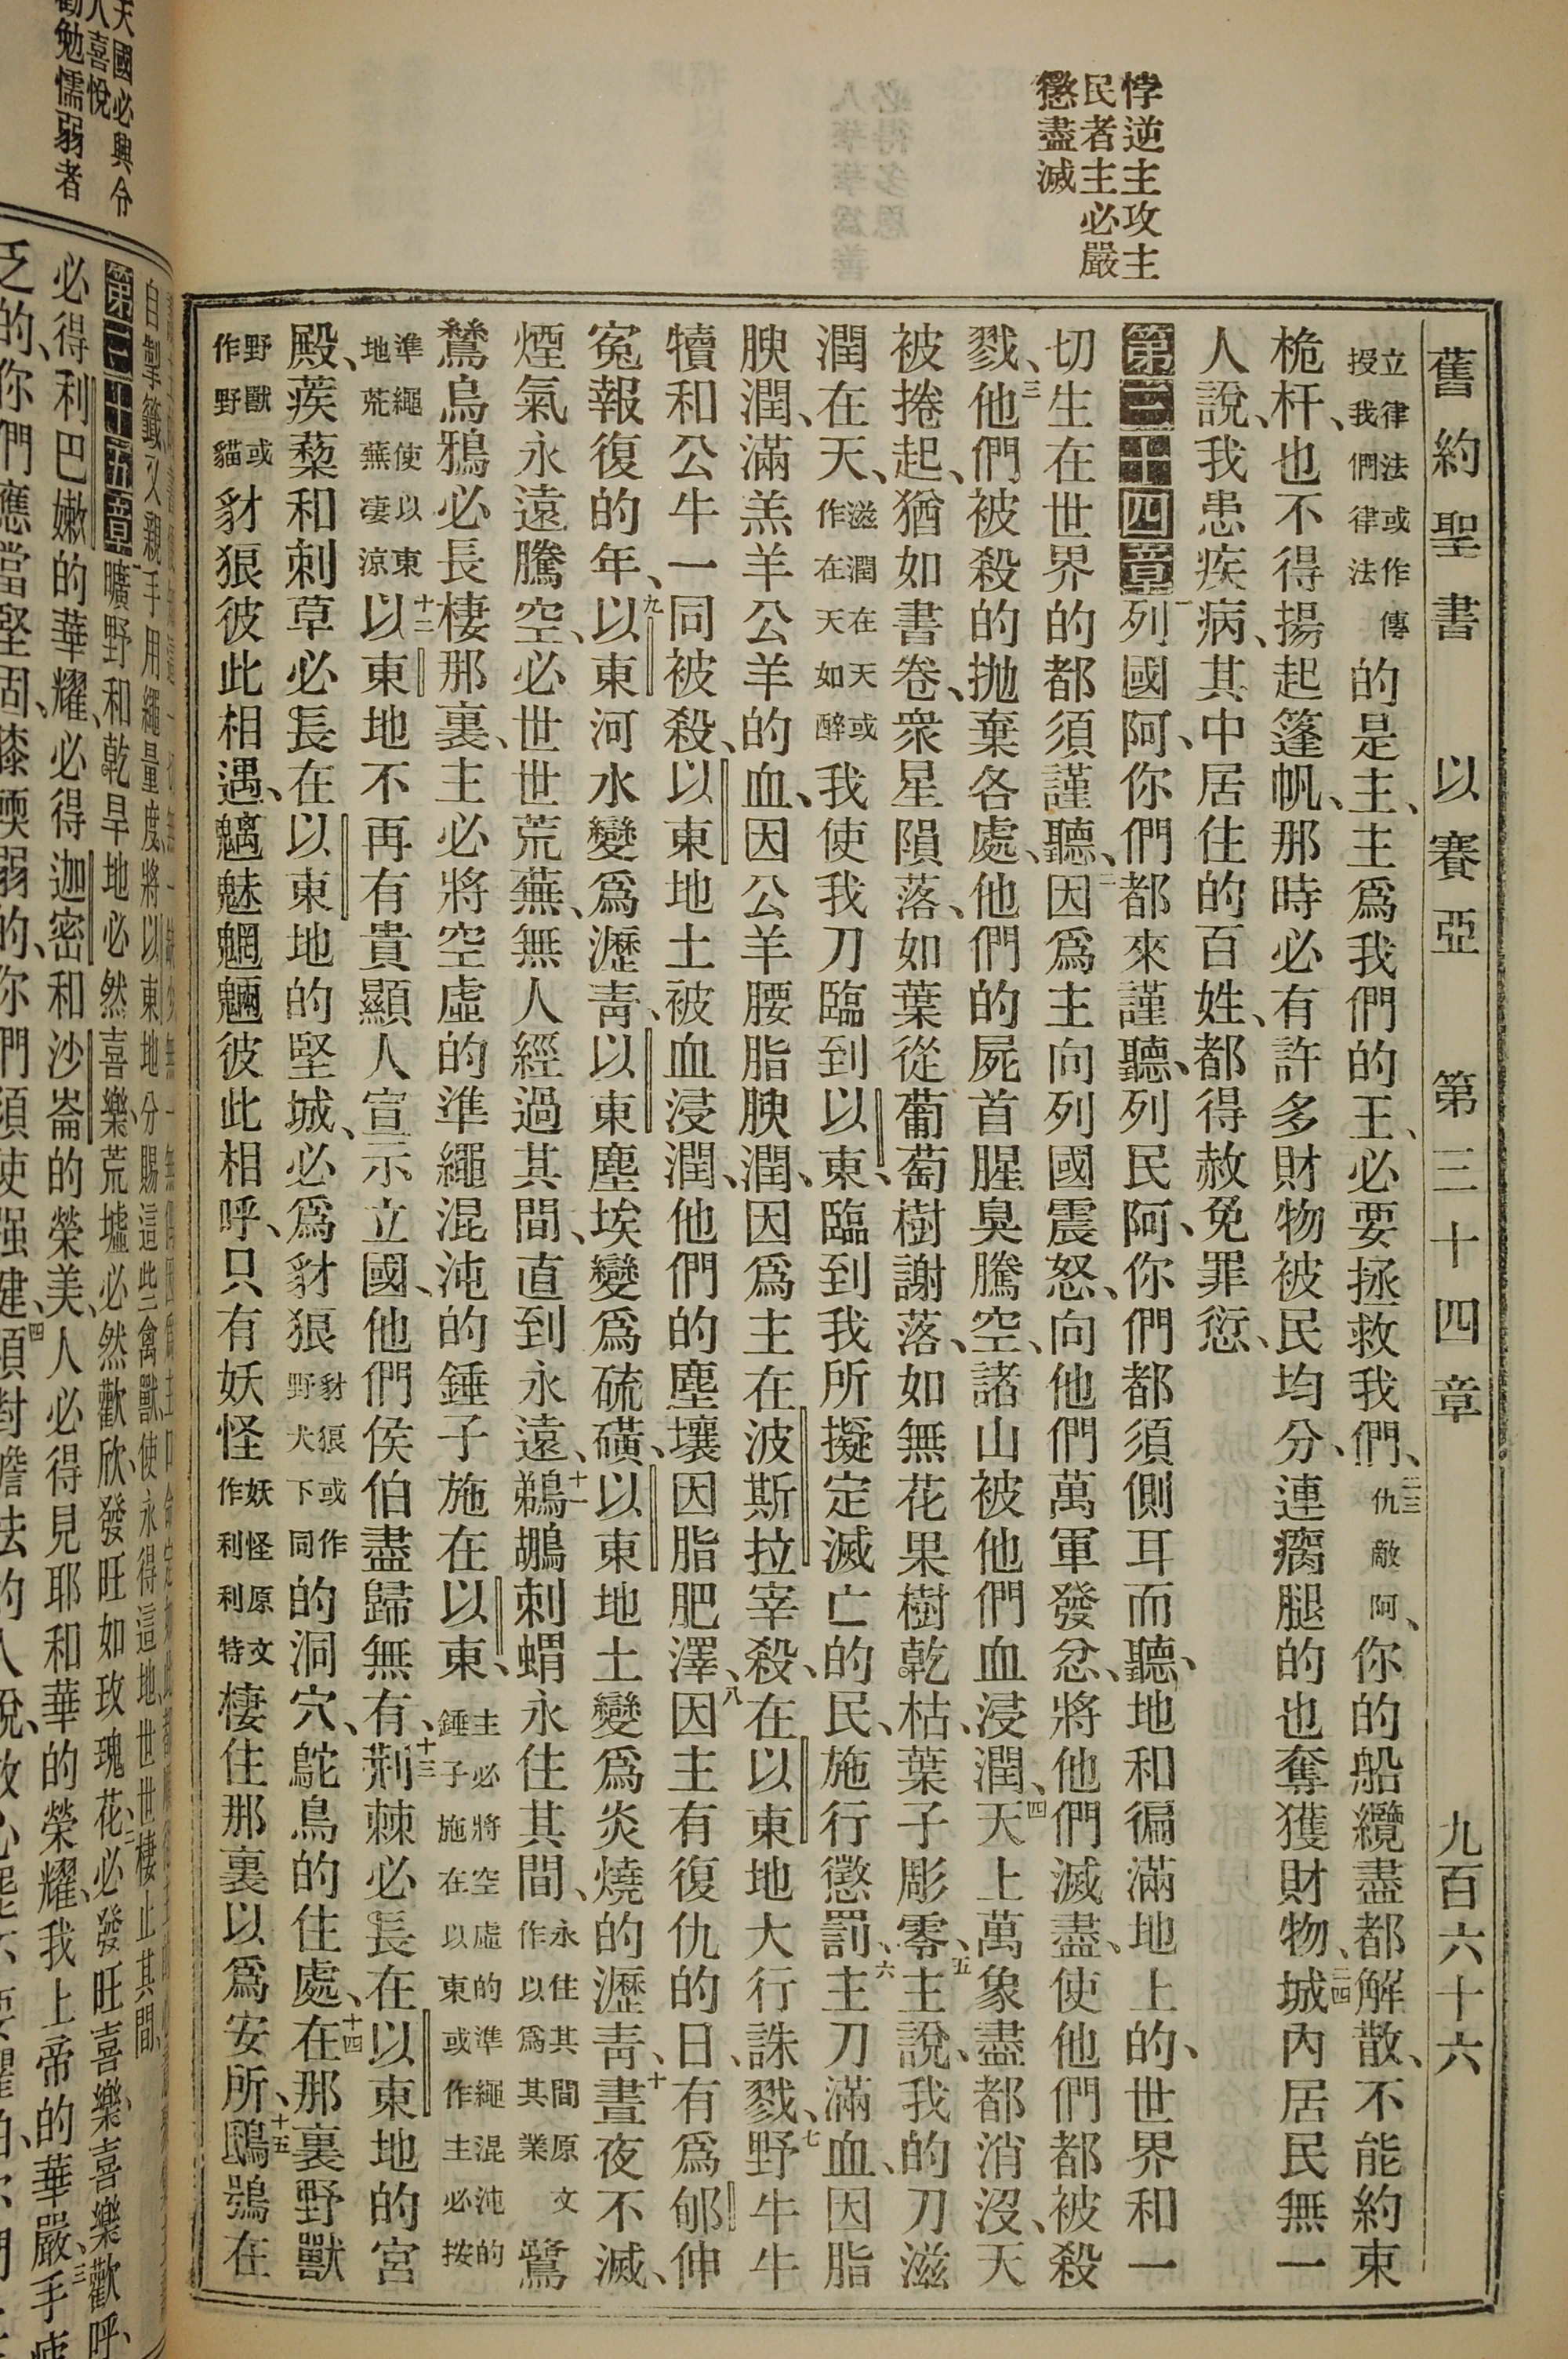 悖逆主攻主
民者主必嚴
懲盡滅
舊約聖書 以賽亞 第三十四章 九百六十六
立律法或作傳授我們律法的是主、主爲我們的王、必要拯救我們、二三仇敵阿、你的船纜盡都解散、不能約束
桅杆、也不得揚起篷帆、那時必有許多財物被民均分、連瘸腿的也奪獲財物、二四城內居民無一
人說、我患疾病、其中居住的百姓、都得赦免罪愆、
第三十四章一列國阿、你們都來謹聽、列民阿、你們都須側耳而聽、地和徧滿地上的、世界和一
切生在世界的都須謹聽、二因爲主向列國震怒、向他們萬軍發忿、將他們滅盡、使他們都被殺
戮、三他們被殺的拋棄各處、他們的屍首腥臭騰空、諸山被他們血浸潤、四天上萬象盡都消沒、天
被捲起、猶如書卷、衆星隕落、如葉從葡萄樹謝落、如無花果樹乾枯、葉子彫零、五主說、我的刀滋
潤在天、滋潤在天或作在天如醉我使我刀臨到以東、臨到我所擬定滅亡的民、施行懲罰、六主刀滿血、因脂
腴潤、滿羔羊公羊的血、因公羊腰脂腴潤、因爲主在波斯拉宰殺、在以東地大行誅戮、七野牛牛
犢和公牛一同被殺、以東地土被血浸潤、他們的塵壤因脂肥澤、八因主有復仇的日、有爲郇伸
冤報復的年、九以東河水變爲瀝靑、以東塵埃變爲硫磺、以東地土變爲炎燒的瀝靑、十晝夜不滅、
煙氣永遠騰空、必世世荒蕪、無人經過其間、直到永遠、十一鵜鶘刺蝟永住其間、永住其間原文作以爲其業鷺
鶿烏鴉必長棲那裏、主必將空虛的準繩混沌的錘子施在以東、主必將空虛的準繩混沌的錘子施在以東或作主必按
準繩使以東地荒蕪凄涼十二以東地不再有貴顯人宣示立國、他們侯伯盡歸無有、十三荊棘必長在以東地的宮
殿、蒺藜和刺草必長在以東地的堅城、必爲豺狼豺狼或作野犬下同的洞穴、鴕鳥的住處、十四在那裏野獸
野獸或作野貓豺狼彼此相遇、魑魅魍魎彼此相呼、只有妖怪妖怪原文作利利特棲住那裏以爲安所、十五鴟鴞在
天國必興
人喜悅
勸勉懦弱者
自掣籤、又親手用繩量度、將以東地分賜這些禽獸、使永得這地、世世棲止其間、
第三十五章一曠野和乾旱地必然喜樂、荒墟必然歡欣、發旺如玫瑰花、二必發旺喜樂、喜樂歡呼、
必得利巴嫩的華耀、必得迦密和沙崙的榮美、人必得見耶和華的榮耀、我上帝的華嚴、三手